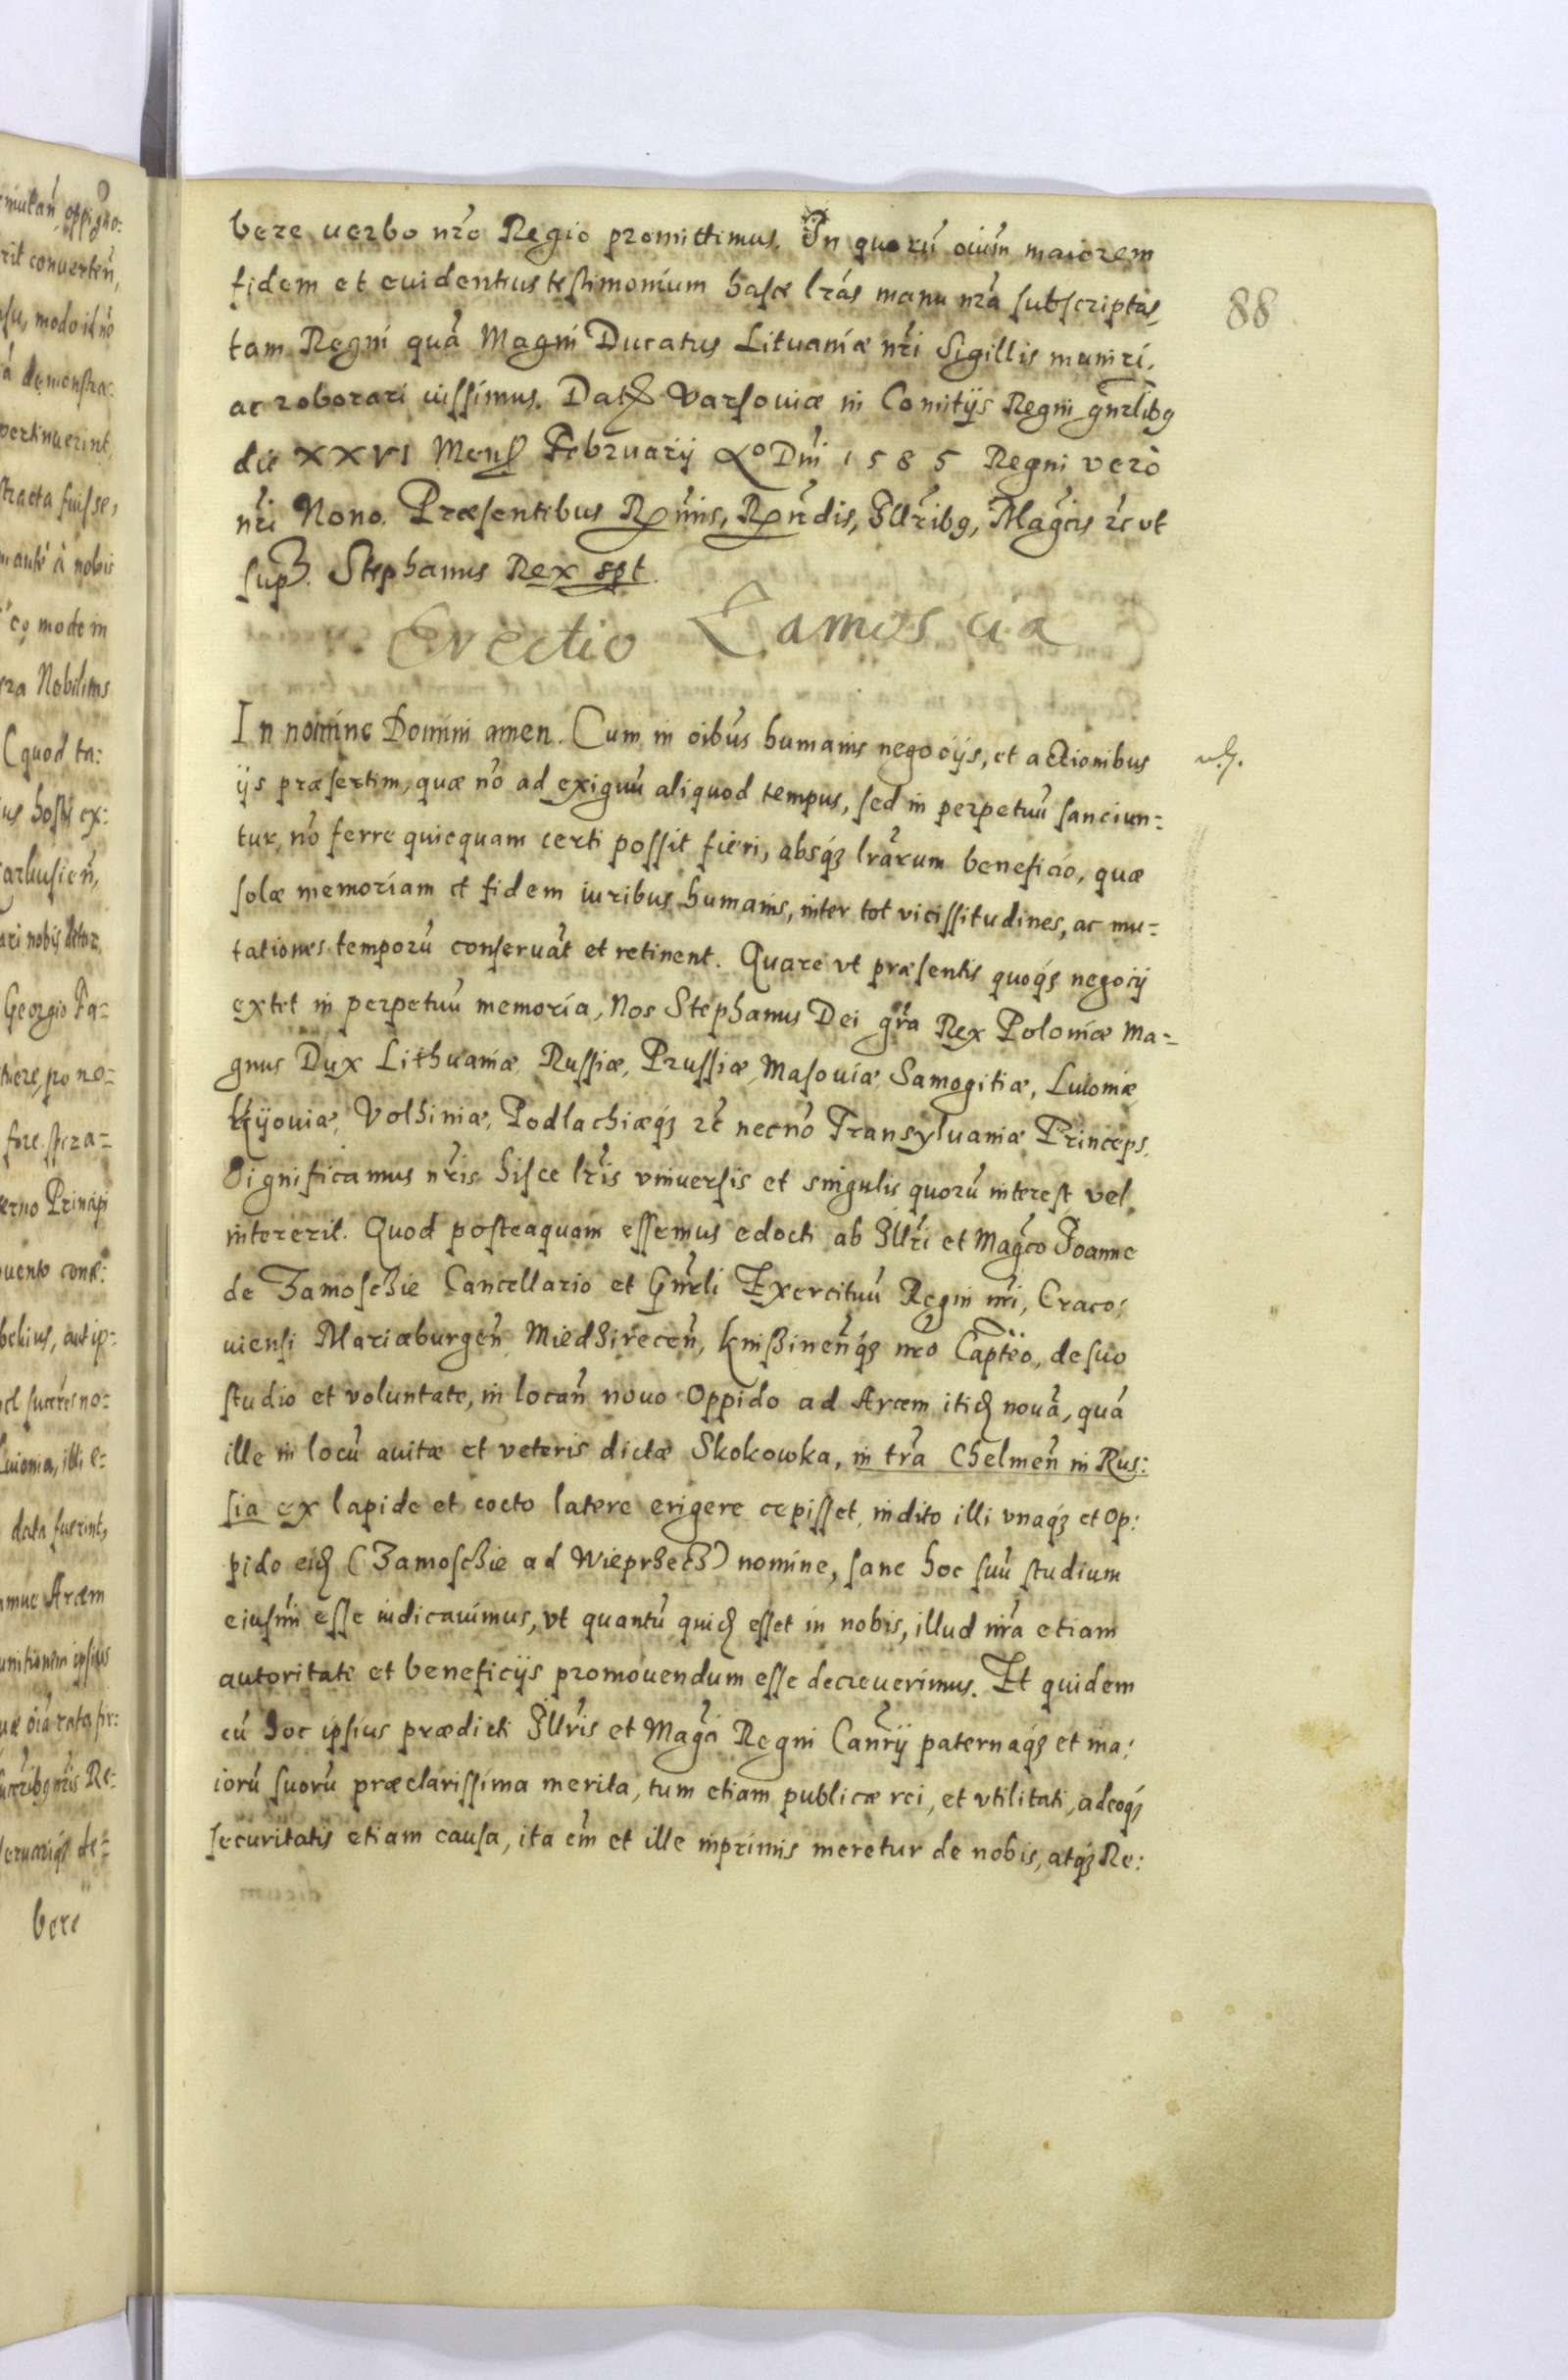 bere verbo nr̃o Regio promittimus. In quorũ oium maiorem
fidem et euidentius testimonium hasce lr̃as manu nr̃a subscriptas,
tam Regni quã Magni Ducatus Lituaniæ nr̃i Sigillis muniri,
ac roborari iussimus. Dat Varsouiæ in Comitijs Regni gnr̃libq
die XXVI Mens Februarij Ao Dni 1585 Regni vero
nr̃i Nono. Præsentibus Rmis, Rndis, Illr̃ibq, Magcis rc vt
supʒ. Stephanus Rex spt.
Erectio Zamoscia
88
In nomine Domini amen. Cum in oibus humanis negocijs, et actionibus
ijs præsertim, quæ nõ ad exiguũ aliquod tempus, sed in perpetuũ sanciun=
tur, nõ ferre quicquam certi possit fieri, absqʒ lr̃arum beneficio, quæ
solæ memoriam et fidem iuribus humanis, inter tot vicissitudines, ac mu=
tationes temporũ conseruãt et retinent. Quare vt præsentis quoqʒ negocij
extet in perpetuũ memoria, Nos Stephanus Dei gr̃a Rex Poloniæ Ma=
gnus Dux Lithuaniæ, Russiæ, Prussiæ, Masouiæ, Samogitiæ, Liuoniæ
Kijouiæ, Volhiniæ, Podlachiæqʒ rc necnõ Transyluaniæ Princeps.
Significamus nr̃is hisce lr̃is vniuersis et singulis quorũ interest vel
intererit. Quod posteaquam essemus edocti ab Illr̃i et Magco Joanne
de Zamoschie Cancellario et Gnr̃li Exercituũ Regni nr̃i, Craco:
uiensi Mariæburgeñ Miedʒireceñ, Knißineñqʒ nr̃o Capteo, de suo
studio et voluntate, in locañ nouo Oppido ad Arcem itid nouã, quã
ille in locũ auitæ et veteris dictæ Skokowka, in tr̃a Chelmeñ in Rus:
sia ex lapide et cocto latere erigere cepisset, indito illi vnaqʒ et Op:
pido eid (Zamoschie ad Wieprʒecʒ) nomine, sane hoc suũ studium
eiusm̃i esse iudicauimus, vt quantũ quid esset in nobis, illud nr̃a etiam
autoritate et beneficijs promouendum esse decreuerimus. Et quidem
cũ hoc ipsius prædicti Illr̃is et Magci Regni Canr̃ij paternaqʒ et ma:
iorũ suorũ præclarissima merita, tum etiam publicæ rei, et vtilitati, adeoqʒ
securitatis etiam causa, ita em̃ et ille inprimis meretur de nobis, atqʒ Re: